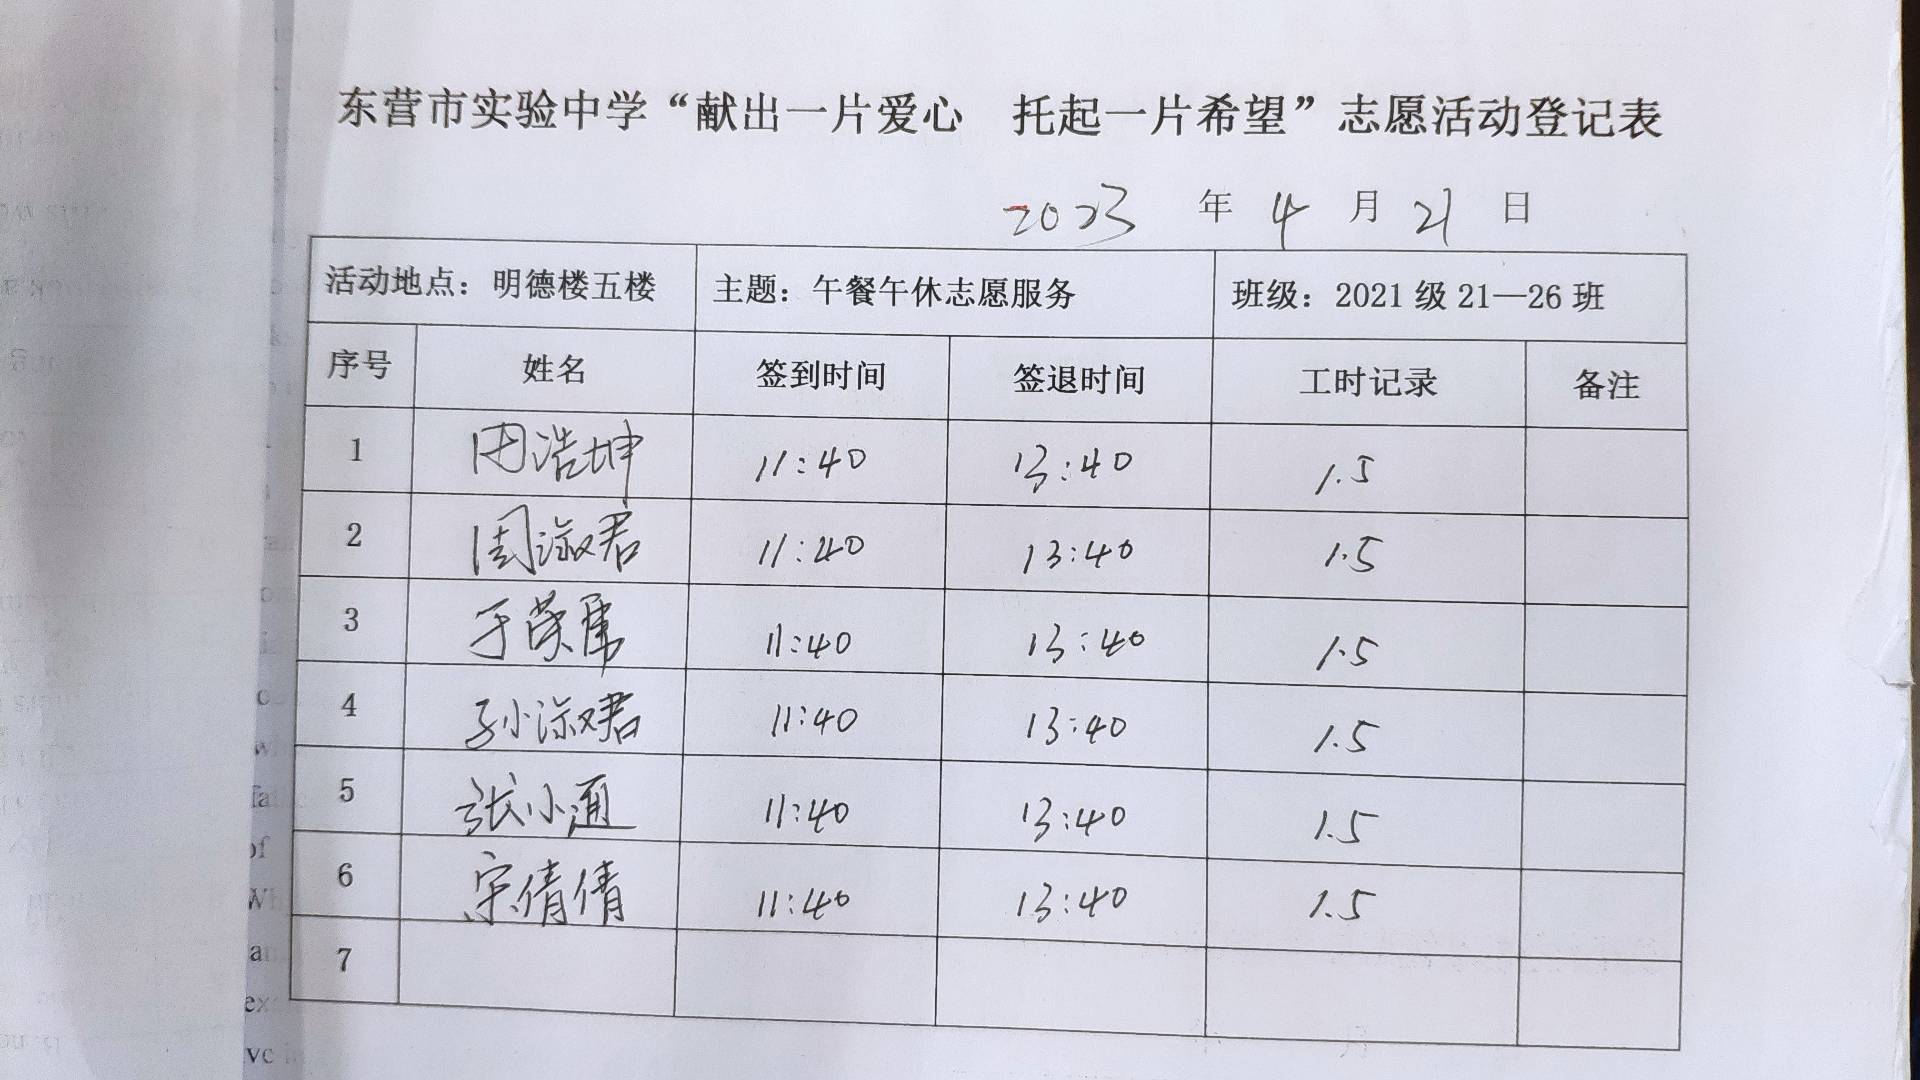 东营市实验中学“献出一片爱心 托起一片希望”志愿活动登记表
2023 年 4 月 21 日
活动地点：明德楼五楼 主题：午餐午休志愿服务 班级：2021 级 21—26 班
序号 姓名 签到时间 签退时间 工时记录 备注
1 田浩坤 11:40 13:40 1.5
2 周淑君 11:40 13:40 1.5
3 于荣 11:40 13:40 1.5
4 孙淑君 11:40 13:40 1.5
5 张小通 11:40 13:40 1.5
6 宋倩倩 11:40 13:40 1.5
7